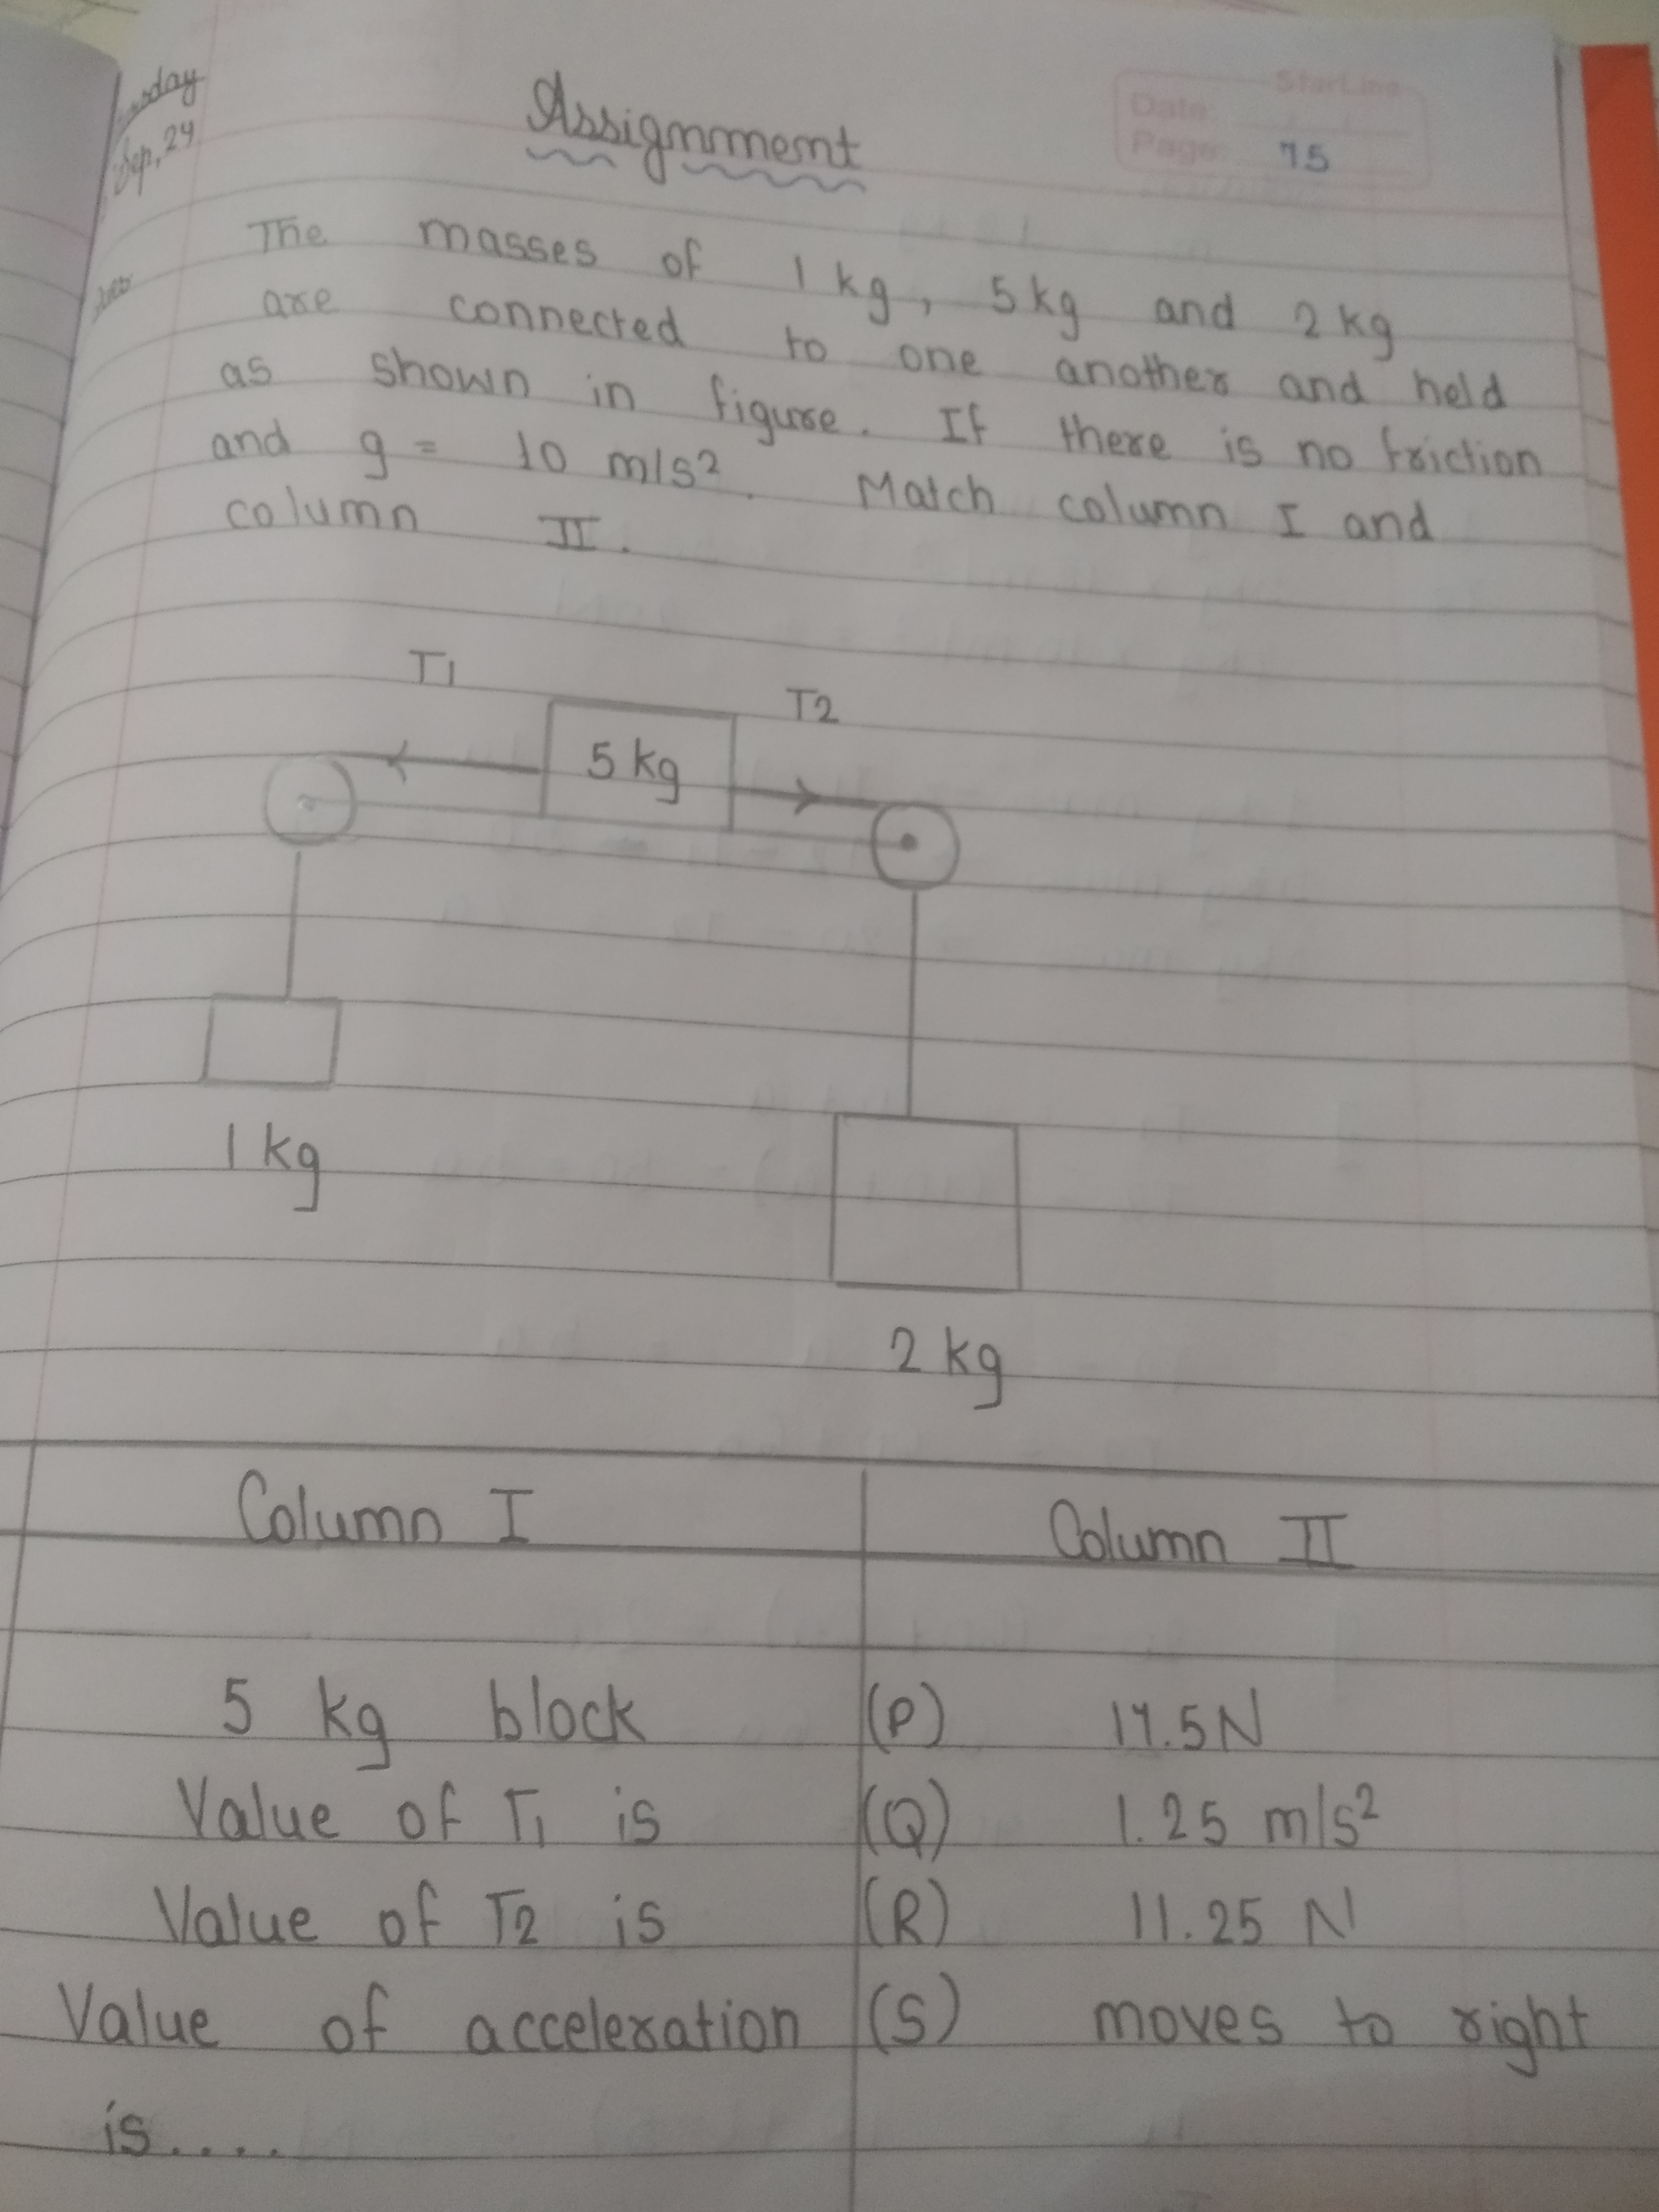 Sep, 24
Assignment
StarLine
Date:
Page: 75
The masses of 1 kg, 5 kg and 2 kg
are connected to one another and held
as shown in figure. If there is no friction
and g = 10 m/s². Match column I and
column II.
T1
T2
5 kg
1 kg
2 kg
Column I Column II
5 kg block (P) 17.5 N
Value of T1 is (Q) 1.25 m/s²
Value of T2 is (R) 11.25 N
Value of acceleration (S) moves to right
is....